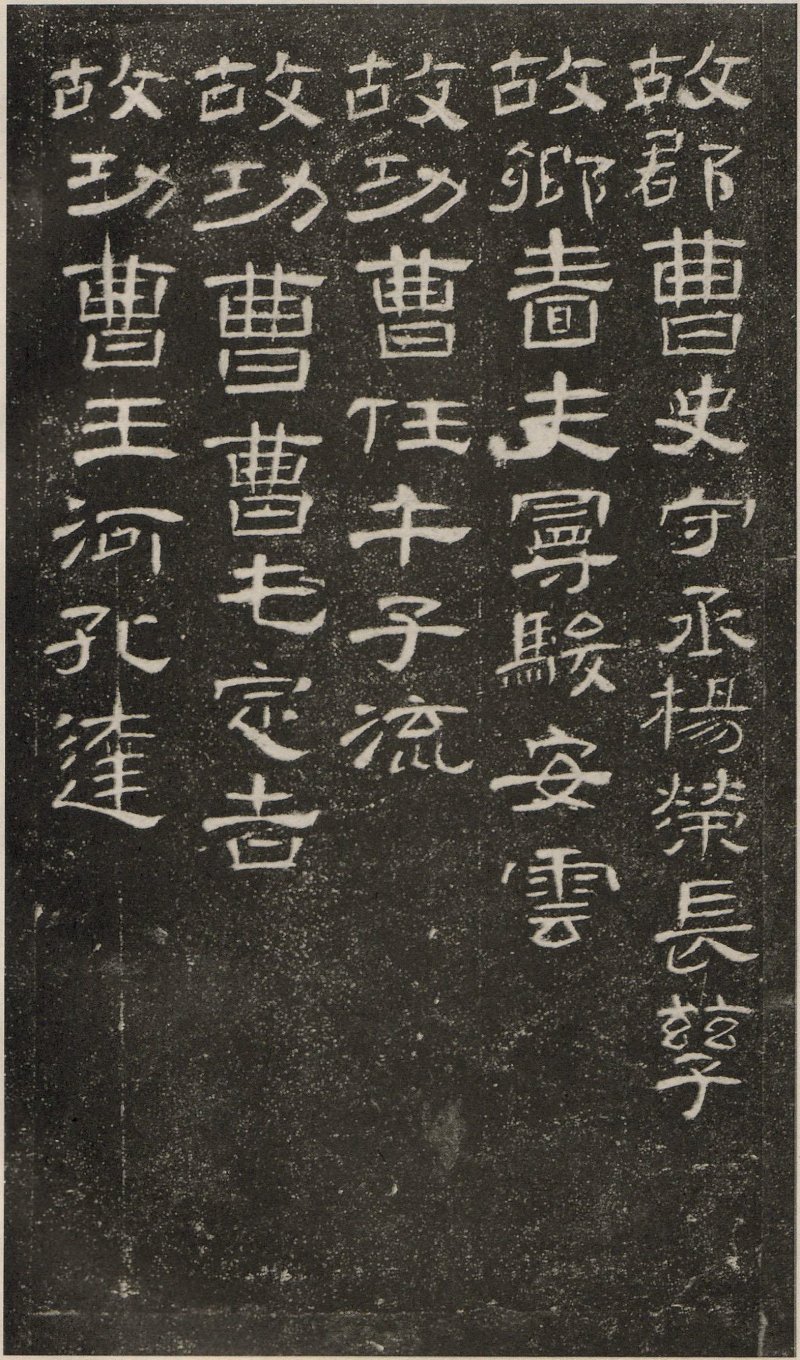 故郡曹史守丞楊榮長孳
故鄉嗇夫曼駿安雲
故功曹任午子流
故功曹曹屯定吉
故功曹王河孔達